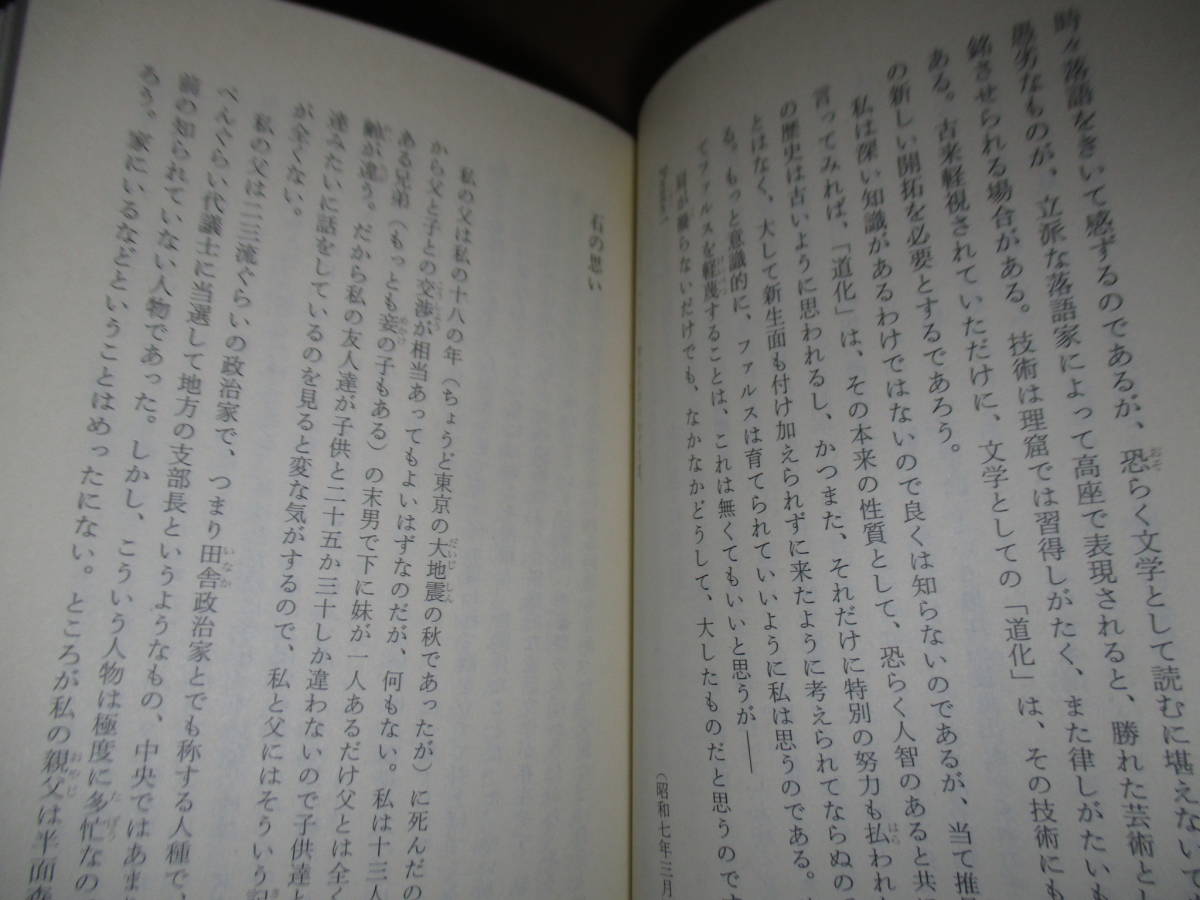 時々落語をきいて感ずるのであるが、恐らく文学として読むに堪えない
愚劣なものが、立派な落語家によって高座で表現されると、勝れた芸術と
銘させられる場合がある。技術は理窟では習得しがたく、また律しがたいも
ある。古来軽視されていただけに、文学としての「道化」は、その技術にも
の新しい開拓を必要とするであろう。
私は深い知識があるわけではないので良くは知らないのであるが、当て推
言ってみれば、「道化」は、その本来の性質として、恐らく人智のあると共に
の歴史は古いように思われるし、かつまた、それだけに特別の努力も払われ
とはなく、大して新生面も付け加えられずに来たように考えられてならぬの
る。もっと意識的に、ファルスは育てられていいように私は思うのである。
てファルスを軽蔑することは、これは無くてもいいと思うが――
肩が凝らないだけでも、なかなかどうして、大したものだと思うのです
（昭和七年三月
石の思い
私の父は私の十八の年（ちょうど東京の大地震の秋であったが）に死んだの
から父と子との交渉が相当あってもよいはずなのだが、何もない。私は十三人
ある兄弟（もっとも妾の子もある）の末男で下に妹が一人あるだけ父とは全く
齢が違う。だから私の友人達が子供と二十五か三十しか違わないので子供達と
達みたいに話をしているのを見ると変な気がするので、私と父にはそういう
が全くない。
私の父は二三流ぐらいの政治家で、つまり田舎政治家とでも称する人種で、
ぺんぐらい代議士に当選して地方の支部長というようなもの、中央ではあま
前の知られていない人物であった。しかし、こういう人物は極度に多忙なの
ろう。家にいるなどということはめったにない。ところが私の親父は半面森